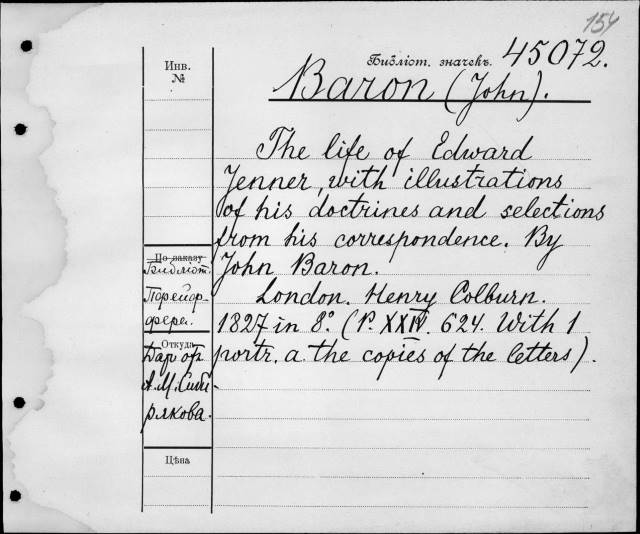 154
Инв. №
Библіот. значекъ. 45072.
Baron (John).
The life of Edward
Jenner, with illustrations
of his doctrines and selections
from his correspondence. By
John Baron.
London. Henry Colburn.
1827 in 8º. (P. XXIV. 624. With 1
portr. a. the copies of the letters).
По заказу
Библіот.
Порфер-
Откуда
Дар от
А. М. Сиби-
рякова.
Цѣна